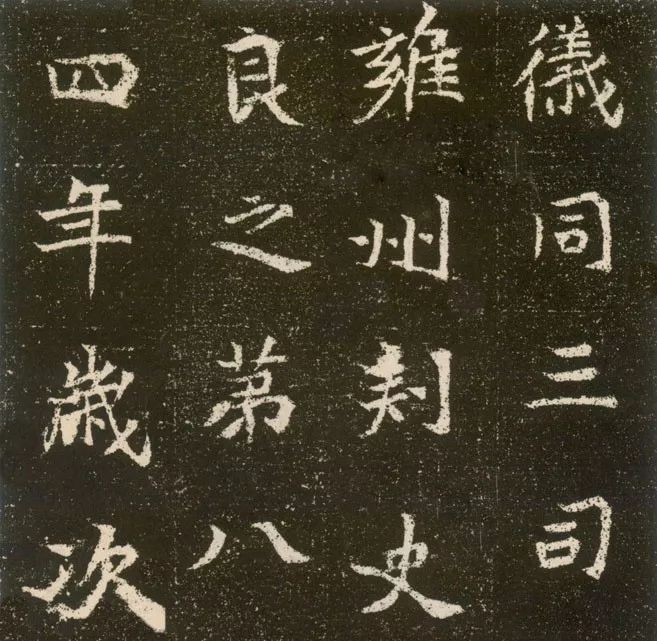 儀同三司
雍州刾史
良之苐八
四年歲次